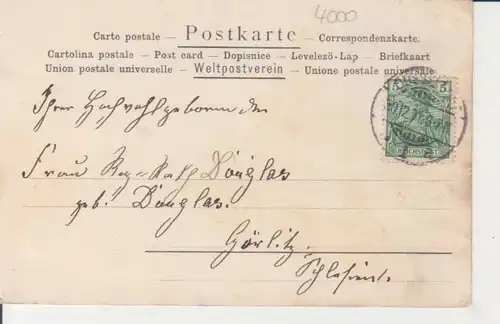 4000
Carte postale — Postkarte — Correspondenzkarte.
Cartolina postale — Post card — Dopisnice — Levelező-Lap — Briefkaart
Union postale universelle — Weltpostverein — Unione postale universale
5 5
REICHSPOST
Ihrer Hochwohlgeboren der
Frau Reg-Rath Douglas
geb. Douglas.
Görlitz.
Schlesien.